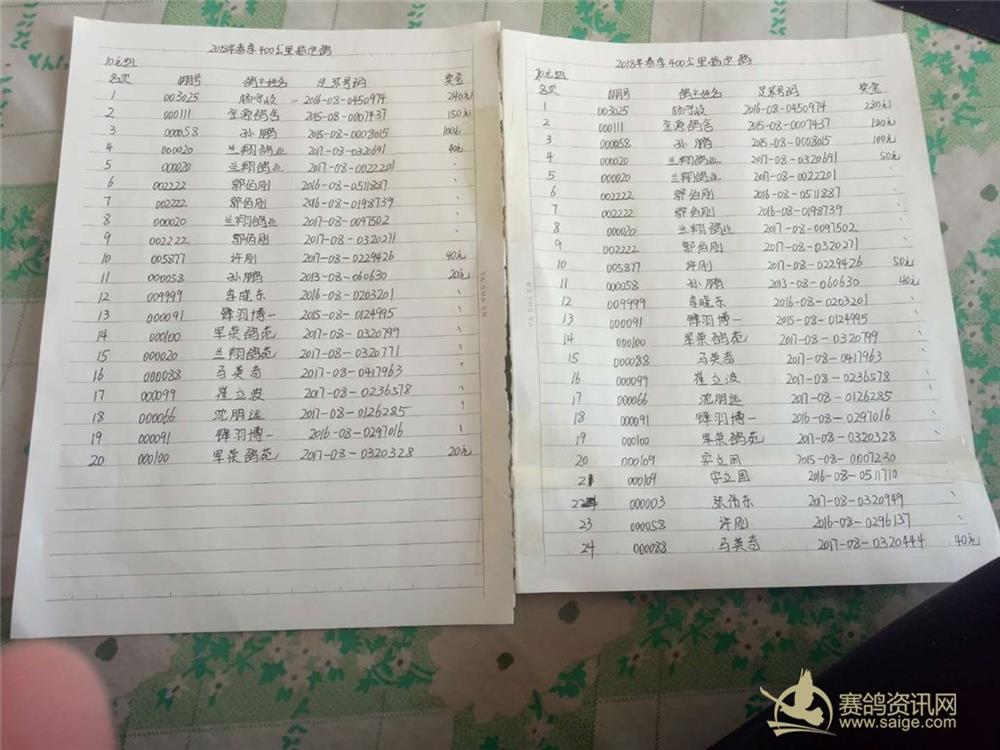 2018年春季400公里指定鸽
10元组
名次 棚号 鸽主姓名 足环号码 奖金
1 003025 杨守改 2016-08-0450974 240元
2 000111 圣源鸽舍 2015-08-0007437 150元
3 000058 孙鹏 2015-08-0008015 100元
4 000020 兰翔鸽业 2017-08-0320691 40元
5 000020 兰翔鸽业 2017-08-0022201 、
6 002222 郭伯刚 2016-08-0511887 、
7 002222 郭伯刚 2016-08-0198739 、
8 000020 兰翔鸽业 2017-08-0097502 、
9 002222 郭伯刚 2017-08-0320271 、
10 005877 许刚 2017-08-0229426 40元
11 000058 孙鹏 2013-08-060630 20元
12 009999 李晓东 2016-08-0203201 、
13 000091 锋羽博一 2015-08-0124995 、
14 000100 军荣鸽苑 2017-08-0320799 、
15 000020 兰翔鸽苑 2017-08-0320771 、
16 000088 马英奇 2017-08-0417963 、
17 000099 崔立波 2017-08-0236578 、
18 000066 沈朋远 2017-08-0126285 、
19 000091 锋羽博一 2016-08-0297016 、
20 000100 军荣鸽苑 2017-08-0320328 20元
2018年春季400公里指定鸽
20元组
名次 棚号 鸽主姓名 足环号码 奖金
1 003025 杨守改 2016-08-0450974 230元
2 000111 圣源鸽舍 2015-08-0007437 120元
3 000058 孙鹏 2015-08-0008015 100元
4 000020 兰翔鸽业 2017-08-0320691 50元
5 000020 兰翔鸽业 2017-08-0022201 、
6 002222 郭伯刚 2016-08-0511887 、
7 002222 郭伯刚 2016-08-0198739 、
8 000020 兰翔鸽业 2017-08-0097502 、
9 002222 郭伯刚 2017-08-0320271 、
10 005877 许刚 2017-08-0229426 50元
11 000058 孙鹏 2013-08-060630 40元
12 009999 李晓东 2016-08-0203201 、
13 000091 锋羽博一 2015-08-0124995 、
14 000100 军荣鸽苑 2017-08-0320799 、
15 000088 马英奇 2017-08-0417963 、
16 000099 崔立波 2017-08-0236578 、
17 000066 沈朋远 2017-08-0126285 、
18 000091 锋羽博一 2016-08-0297016 、
19 000100 军荣鸽苑 2017-08-0320328 、
20 000109 宋立国 2015-08-0007230 、
21 000109 宋立国 2016-08-0511710 、
22 000003 张伯东 2017-08-0320949 、
23 000058 许刚 2016-08-0296137 、
24 000088 马英奇 2017-08-0320444 40元
赛鸽资讯网
www.saige.com